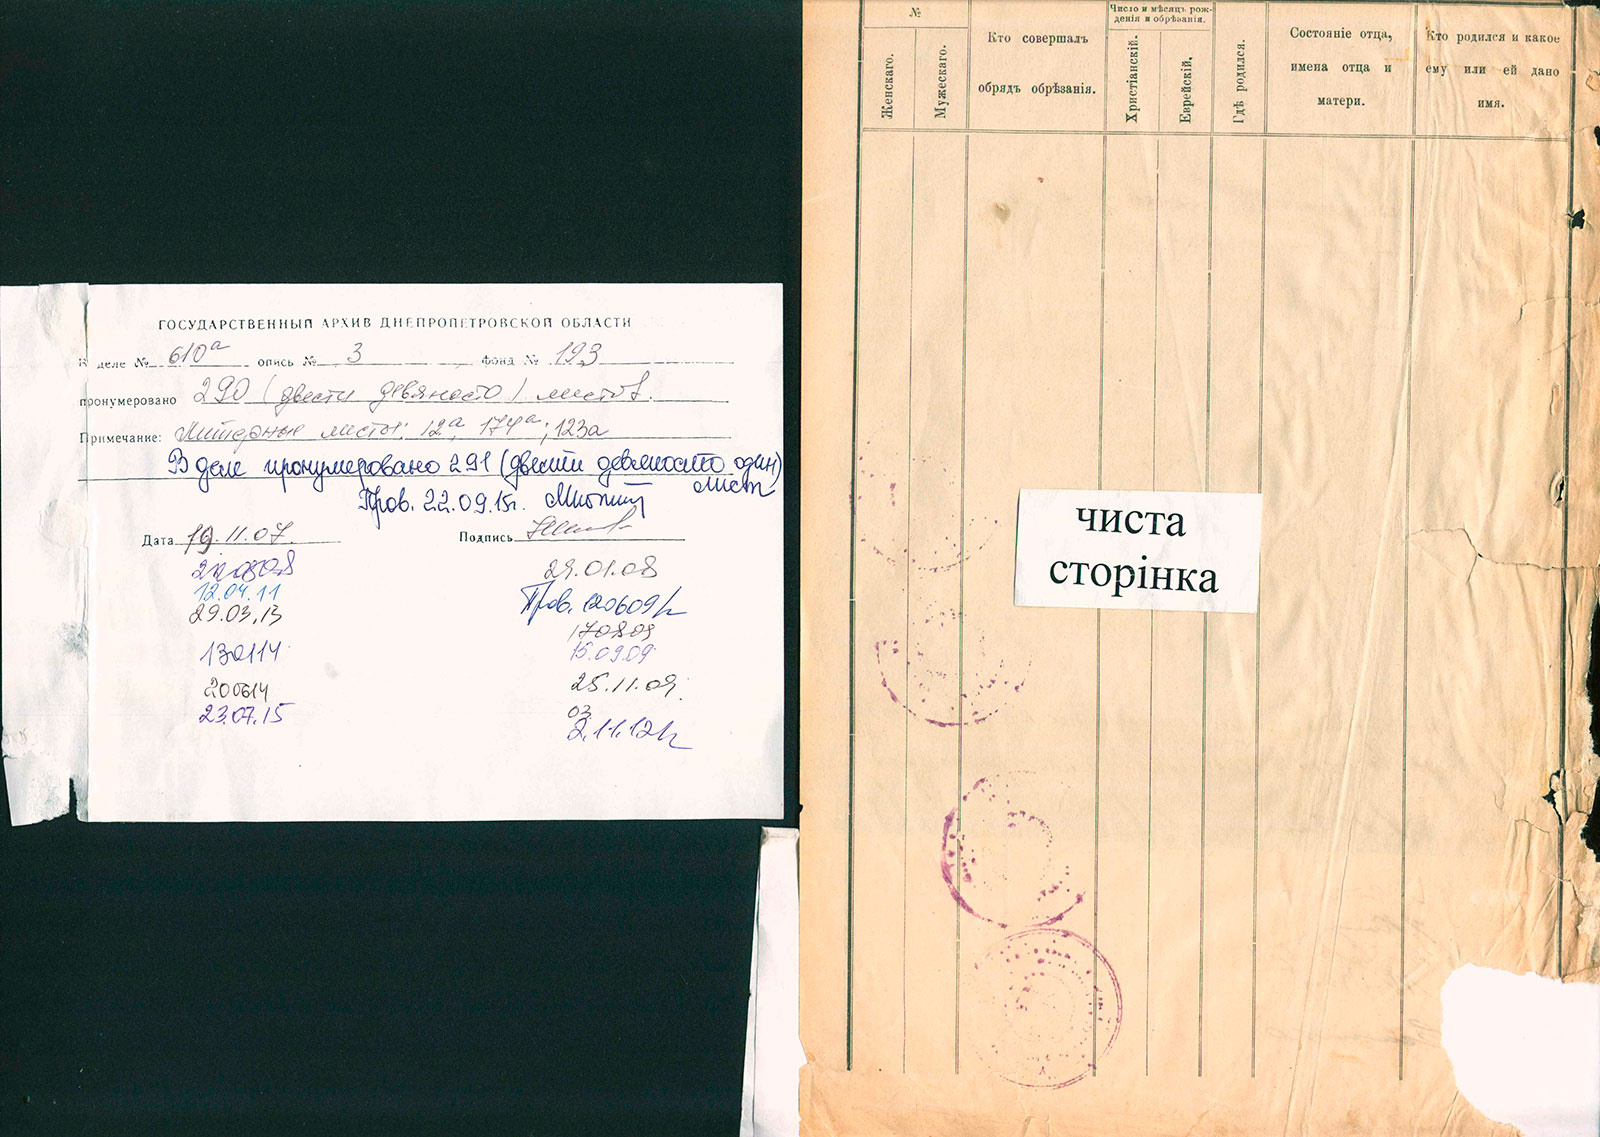 ГОСУДАРСТВЕННЫЙ АРХИВ ДНЕПРОПЕТРОВСКОЙ ОБЛАСТИ
В деле № 610а опись № 3 фонд № 193
пронумеровано 290 (двести девяносто) листов.
Примечание: Литерные листы: 12а, 174а; 123а
В деле пронумеровано 291 (двести девяносто один)
лист
Пров. 22.09.15г.
Дата 19.11.07. Подпись
29.01.08
12.04.11
Пров. 120609
29.03.13
170809
130114
15.09.09
200614
25.11.09.
23.07.15
03
2.11.12
№
Женскаго.
Мужескаго.
Кто совершалъ
обрядъ обрѣзанія.
Число и мѣсяцъ рож-
денія и обрѣзанія.
Христіанскій.
Еврейскій.
Гдѣ родился.
Состояніе отца,
имена отца и
матери.
Кто родился и какое
ему или ей дано
имя.
чиста
сторінка